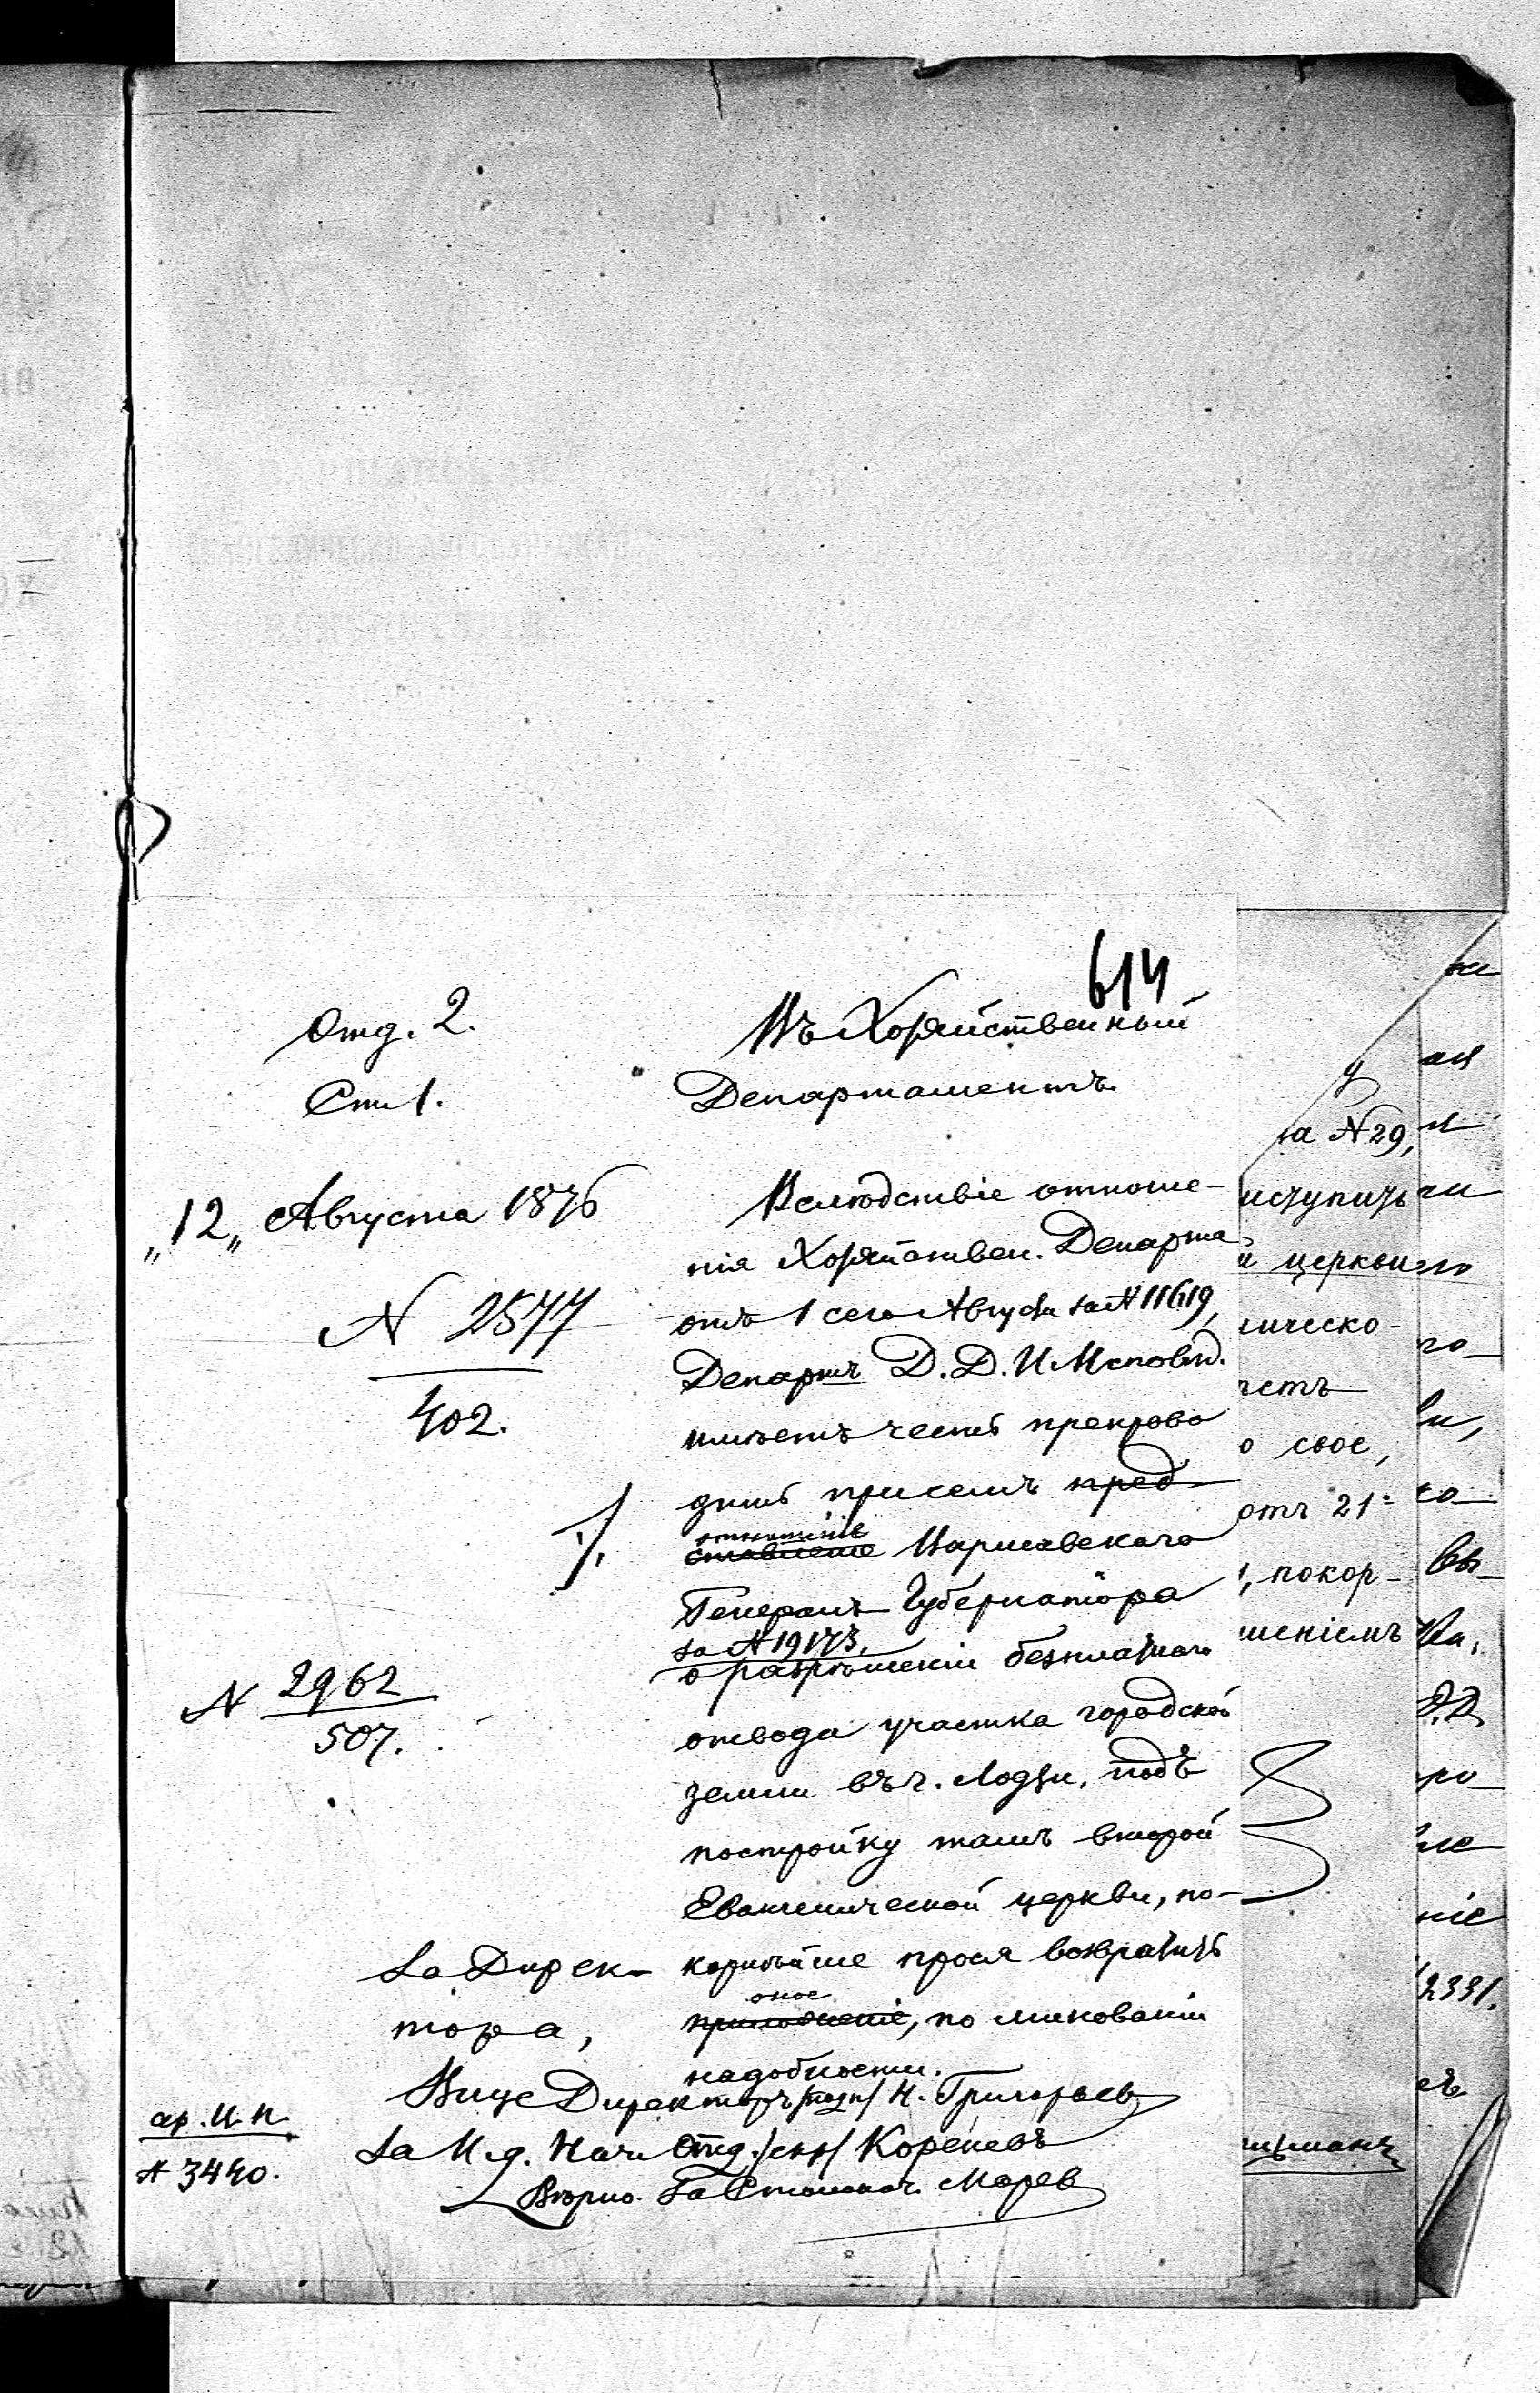 614
Отд. 2.
Ст. 1.
"12" Августа 1876
N 2577
402.
N 2962
507.
Въ Хозяйственный
Департаментъ.
Вслѣдствіе отноше-
нія Хозяйствен. Департа
отъ 1 сего Августа за N 11619,
Департъ Д. Д. И Исповѣд.
имѣетъ честь препрово
дить при семъ пред-
отношеніе
ставленіе Варшавскаго
Генералъ Губернатора
за N 19173,
о разрѣшеніи безплатнаго
отвода участка городской
земли въ г. Лодзи, подъ
постройку тамъ второй
Евангелической церкви, по-
корнѣйше прося возвратить
оное
приложеніе, по минованіи
надобности.
За Дирек-
тора,
Вице Директоръ /подп/ Н. Григорьев
За И. д. Нач. Отд. /скр/ Кореневъ
Вѣрно. За Столонач. Марев
ар. И. п.
N 3440.
за N 29,
иступить
й церкви
ическо-
четъ
о свое,
отъ 21
, покор-
шеніемъ
ая
го
ви,
вы
Д. Д.
ро
ніе
2331.